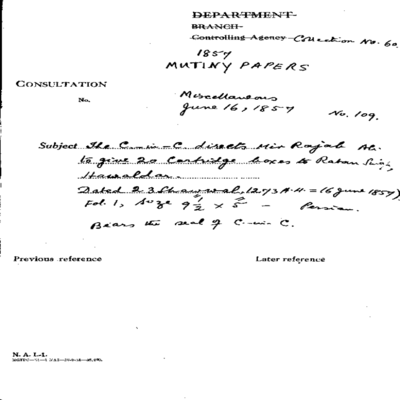 DEPARTMENT
BRANCH
Controlling Agency Collection No. 60
1857
MUTINY PAPERS
CONSULTATION
No.
Miscellaneous
June 16, 1857
No. 109.
Subject The C-in-C. directs Mir Rajab Ali
to give 20 Cartridge boxes to Ratan Singh,
Hawaldar.
Dated 23 Shawwal, 1273 A.H. = 16 June 1857)
Fol. 1, Size 9½ × 5 - Persian.
Bears the seal of C-in-C.
Previous reference
Later reference
N. A. I.-1.